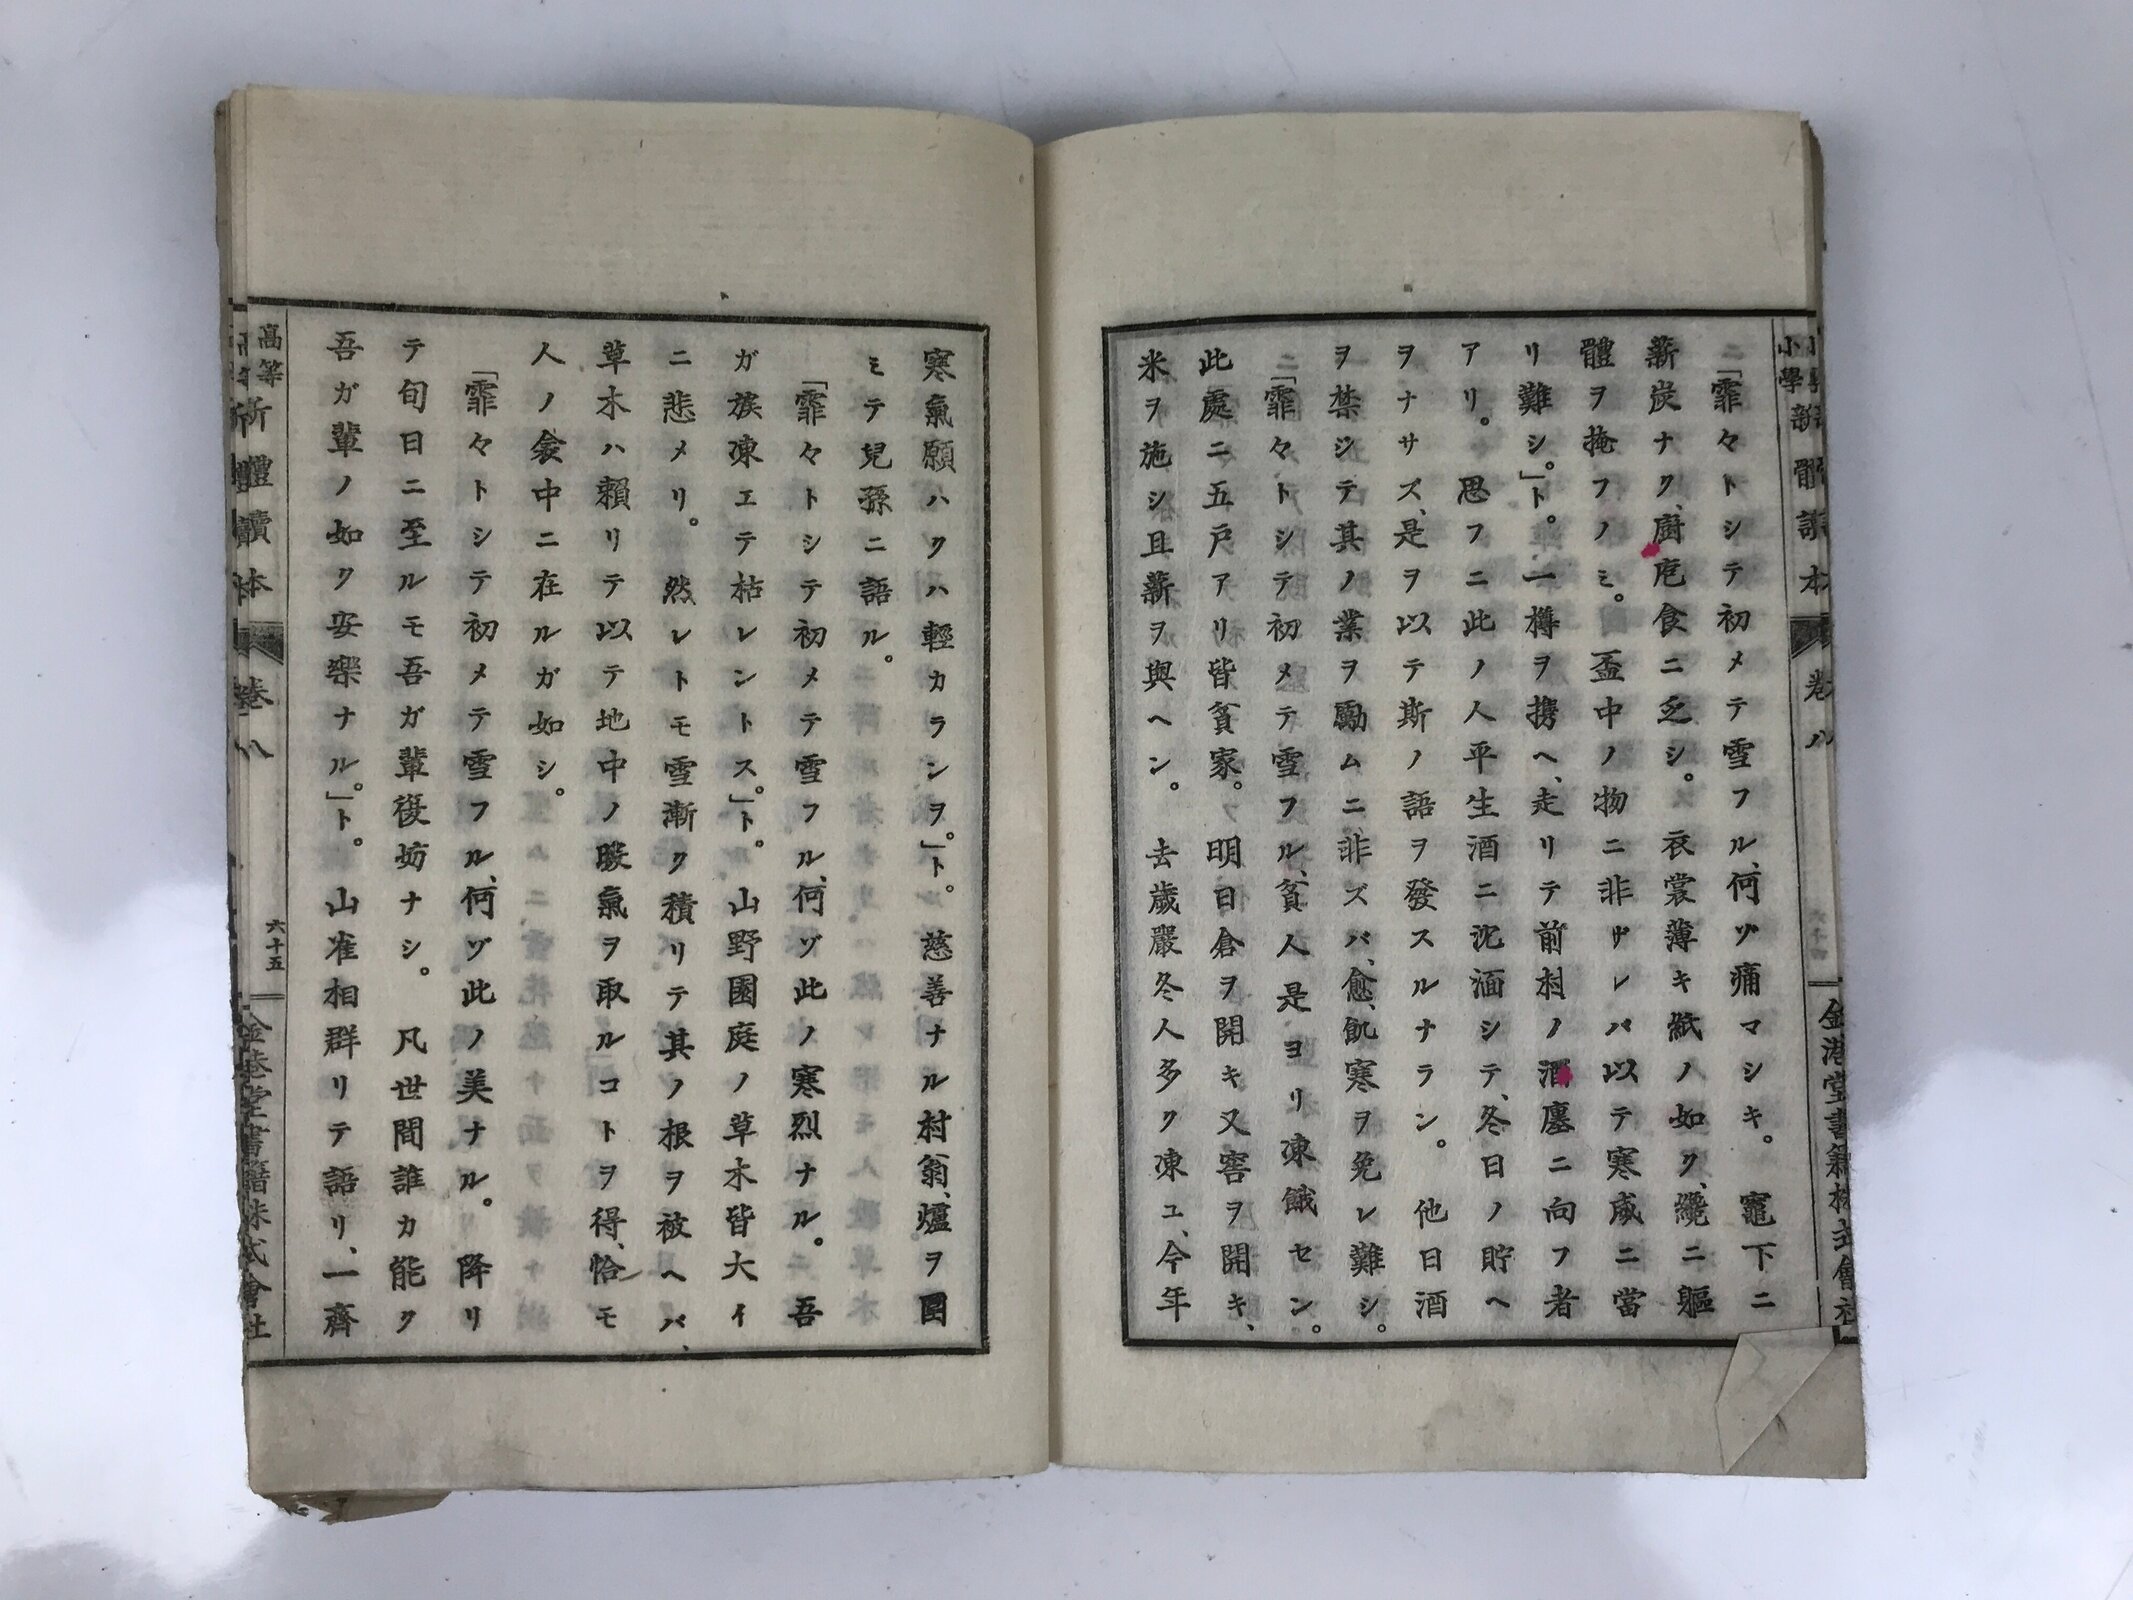 小學新體讀本
卷八
金港堂書籍株式會社
「霏々トシテ初メテ雪フル、何ゾ痛マシキ。　竈下ニ
薪炭ナク、廚庖食ニ乏シ。　衣裳薄キ紙ノ如ク、纔ニ軀
體ヲ掩フノミ。　盃中ノ物ニ非ザレバ以テ寒威ニ當
リ難シ。」ト。　一樽ヲ携ヘ、走リテ前村ノ酒廛ニ向フ者
アリ。　思フニ此ノ人平生酒ニ沈湎シテ、冬日ノ貯ヘ
ヲナサズ、是ヲ以テ斯ノ語ヲ發スルナラン。　他日酒
ヲ禁シテ其ノ業ヲ勵ムニ非ズバ、愈、飢寒ヲ免レ難シ。
「霏々トシテ初メテ雪フル、貧人是ヨリ凍餓セン。
此處ニ五戸アリ皆貧家。　明日倉ヲ開キ又窖ヲ開キ、
米ヲ施シ且薪ヲ與ヘン。　去歲嚴冬人多ク凍ユ、今年
寒氣願ハクハ輕カランヲ。」ト。　慈善ナル村翁、爐ヲ圍
ミテ兒孫ニ語ル。
「霏々トシテ初メテ雪フル、何ゾ此ノ寒烈ナル。　吾
ガ族凍エテ枯レントス。」ト。　山野園庭ノ草木皆大イ
ニ悲メリ。　然レトモ雪漸ク積リテ其ノ根ヲ被ヘバ、
草木ハ賴リテ以テ地中ノ暖氣ヲ取ルコトヲ得、恰モ
人ノ衾中ニ在ルガ如シ。
「霏々トシテ初メテ雪フル、何ゾ此ノ美ナル。　降リ
テ旬日ニ至ルモ吾ガ輩復妨ナシ。　凡世間誰カ能ク
吾ガ輩ノ如ク安樂ナル。」ト。　山雀相群リテ語リ、一齊
高等
新體讀本
卷八
六十五
金港堂書籍株式會社